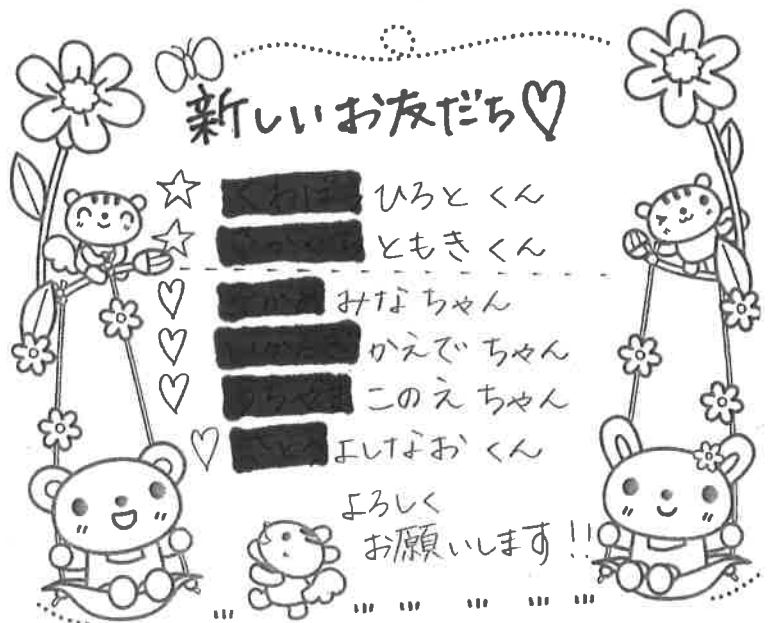 新しいお友だち♡
☆ ひろと くん
☆ ともき くん
♡ みな ちゃん
♡ かえで ちゃん
♡ このえ ちゃん
♡ よしなお くん
よろしく
お願いします!!